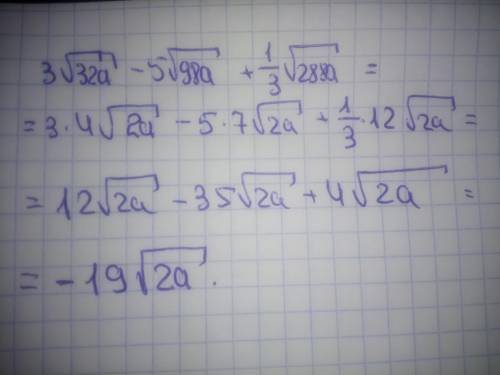 3√32a − 5√98a + 1/3 √288a =
= 3·4√2a − 5·7√2a + 1/3·12√2a =
= 12√2a − 35√2a + 4√2a =
= −19√2a.